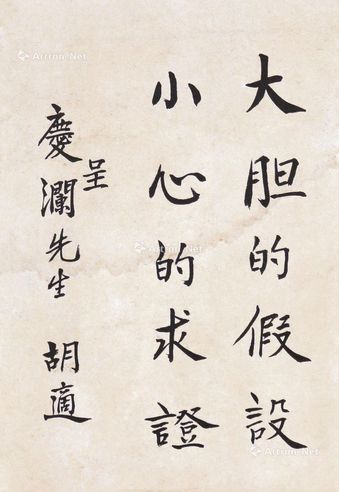 大胆的假設
小心的求證
呈
慶瀾先生 胡適
Artron.Net
Artron.Net
Artron.Net